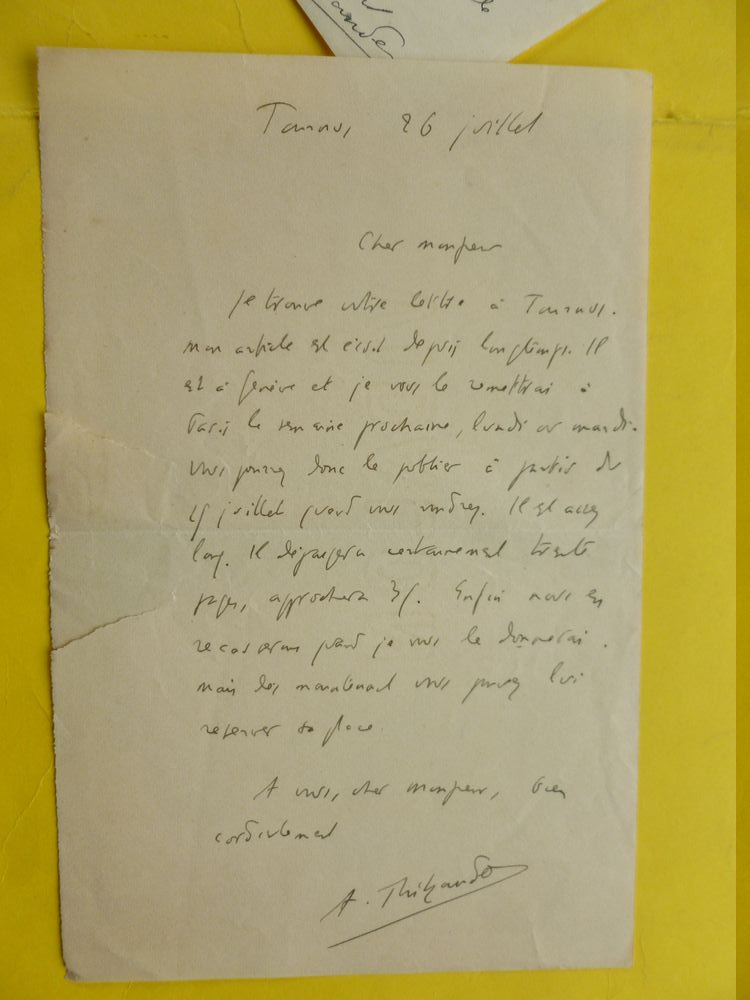 ande
Tournus, 26 juillet
Cher monsieur
Je trouve votre lettre à Tournus.
Mon article est écrit depuis longtemps. Il
est à Genève et je vous le remettrai à
Paris la semaine prochaine, lundi ou mardi.
Vous pourrez donc le publier à partir du
15 juillet quand vous voudrez. Il est assez
long. Il dépassera certainement trente
pages, approchera 35. Enfin nous en
recauserons quand je vous le donnerai.
Mais dès maintenant vous pouvez lui
réserver sa place.
A vous, cher monsieur, bien
cordialement
A. Thibaudet